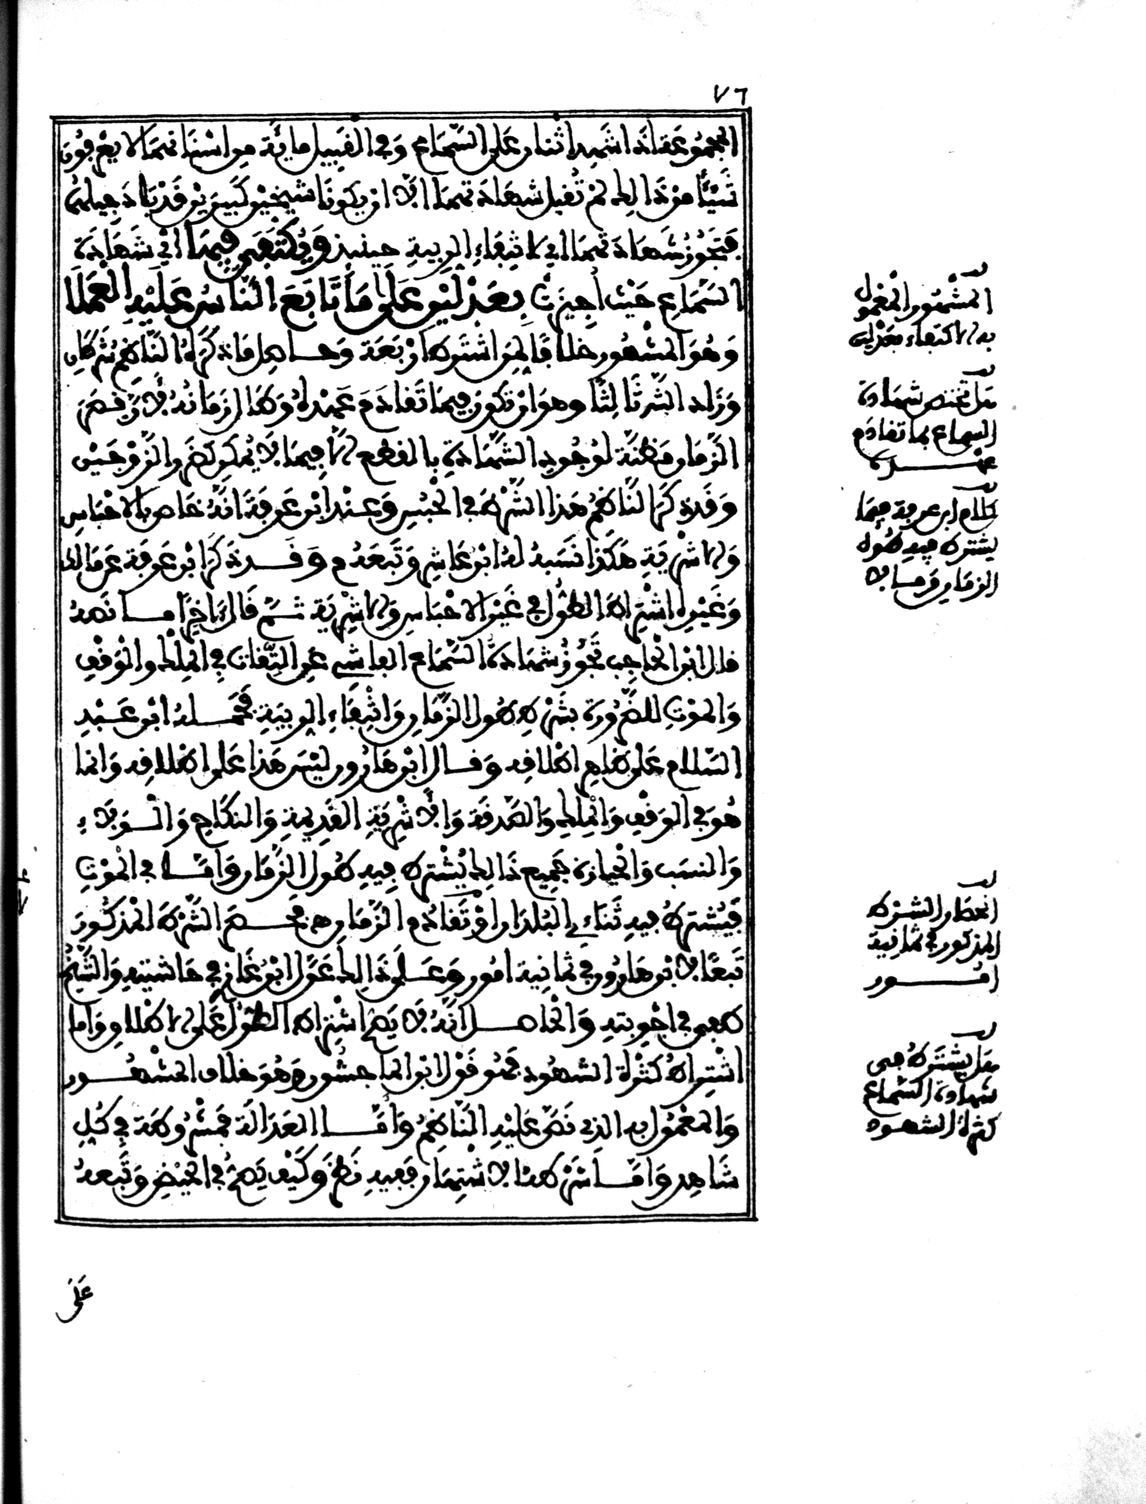 ٧٦
المجموعة فإذا شهد اثنان على السماع وفي القبيل مائة من أسنانهما لا يعرفون
شيئا من ذلك لم تقبل شهادتهما إلا أن يكونا شيخين كبيرين قد باد جيلهما
فتجوز شهادتهما أي لانتفاء الريبة حينئذ ويكتفى فيها أي شهادة
السماع حيث أجيزت بعدلين على ما تابع الناس عليه العملا
وهو المشهور خلافا لمن اشترط أربعة وحاصل ما ذكره الناظم شرطان
وزاد الشرح ثالثا وهو أن تكون فيما تقادم عهده وطال زمانه لأن قصر
الزمان مظنة لوجود الشهادة بالقطع إلا فيما لا يمكن كضرر الزوجين
وقد ذكر الناظم هذا الشرط في الحبس وعند ابن عرفة أنه خاص بالأحباس
والأشرية هكذا نسبه له ابن عاشر وتبعه م وقد ذكر ابن عرفة عن مالك
وغيره اشتراط الطول في غير الأحباس والأشرية ثم قال ناجزا ما نصه
قال ابن الحاجب تجوز شهادة السماع الفاشي عن الثقات في الملك والوقف
والموت للضرورة بشرط طول الزمان وانتفاء الريبة فحمله ابن عبد
السلام على ظاهر إطلاقه وقال ابن هارون ليس هذا على إطلاقه وإنما
هو في الوقف والملك والصدقة والأشرية القديمة والنكاح والولاء
والنسب والحيازة جميع ذلك يشترط فيه طول الزمان وأما في الموت
فيشترط فيه تنائي البلدان أو تقادم الزمان هـ فحصر الشرط المذكور
تبعا لابن هارون في ثمانية أمور وعلى ذلك عول ابن غاز في حاشيته والشيخ
طفى في أجوبته والحاصل أنه لا يصح اشتراط الطول على الإطلاق وأما
اشتراط كثرة الشهود فهو قول ابن الماجشون وهو خلاف المشهور
والمعمول به الذي نص عليه الناظم وأما العدالة فمشروطة في كل
شاهد وأما شرط الاشتهار ففيه نظر وكيف يصح في الحيض وتبعه
على
المشهور المعمول
به الاكتفاء بعدلين
هل تختص شهادة
السماع بما تقادم
عهده
كلام ابن عرفة فيما
يشترط فيه طول
الزمان وما لا
انحصار الشرط
المذكور في ثمانية
أمور
هل يشترط في
شهادة السماع
كثرة الشهود